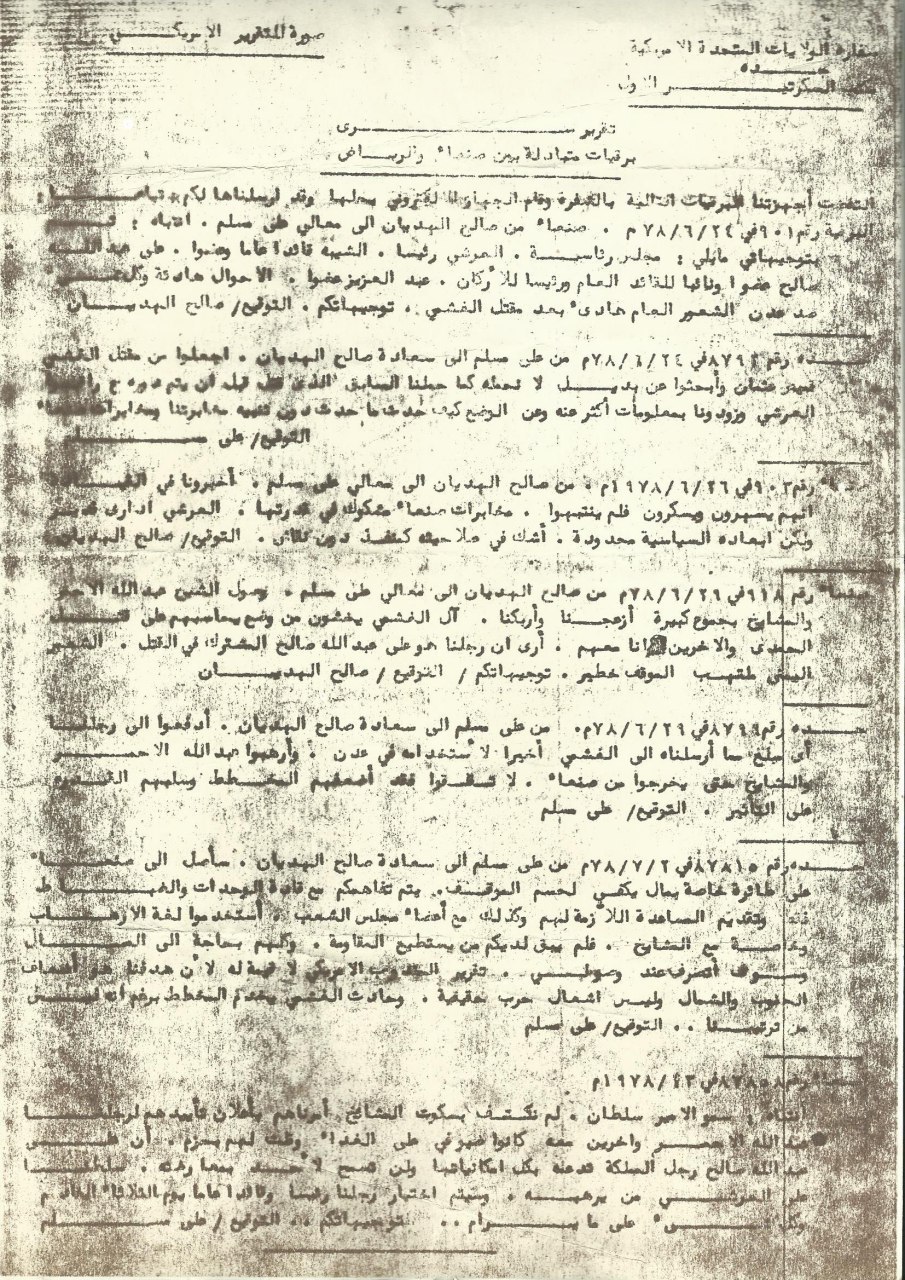 صورة للتقرير الامريكي
سفارة الولايات المتحدة الامريكية
جده
مكتب السكرتير الاول
تقرير سرى
برقيات متبادلة بين صنعاء والرياض
التقطت أجهزتنا البرقيات التالية بالشفرة وقام الجهاز الالكتروني بحلها وقد ارسلناها لكم تباعا :
البرقية رقم ٩٠١ في ٧٨/٦/٢٤ م . صنعاء من صالح الهديان الى معالي على مسلم . انتباه :
بتوجيهاتي مايلي : مجلس رئاسة . العرشي رئيسا . الشيبة قائدا عاما وعضوا . على عبد الله
صالح عضوا ونائبا للقائد العام ورئيسا للأركان . عبد العزيز عضوا . الاحوال هادئة
ضد عدن الشعور العام هادىء بعد مقتل الغشمي . توجيهاتكم . التوقيع/ صالح الهديان
جده رقم في ٧٨/٦/٢٤م من على مسلم الى سعادة صالح الهديان . اجعلوا من مقتل الغشمي
قميص عثمان وأبحثوا عن بديل لا نحمله كما حملنا السابق الذى قتل قبله ان يتم دوره
العرشي وزودونا بمعلومات أكثر عنه وعن الوضع كيف حدث ما حدث دون تنبيه مخابرتنا ومخابرات صنعاء
التوقيع/ على مسلم
صنعاء رقم ٩٠٣ في ١٩٧٨/٦/٢٦م . من صالح الهديان الى معالي على مسلم . أخبرونا في القيادة
انهم يسهرون ويسكرون فلم ينتبهوا . مخابرات صنعاء مشكوك في قدرتها . العرشي ادارى قدير
ولكن ابعاده السياسية محدودة . أشك في صلاحيته كمنفذ دون نقاش . التوقيع/ صالح الهديان
صنعاء رقم ٩١٨ في ٧٨/٦/٢٩م من صالح الهديان الى معالي على مسلم . وصول الشيخ عبد الله الاحمر
والمشايخ بجموع كبيرة أزعجنا وأربكنا . آل الغشمي يخشون من وضع يحاسبهم على قتل
الحمدى والاخرين وانا معهم . أرى ان رجلنا هو على عبد الله صالح المشترك في القتل . الشعور
اليمني ملتهب الموقف خطير . توجيهاتكم / التوقيع / صالح الهديان
جده رقم ٨٧٩٩ في ٧٨/٦/٢٩م. من على مسلم الى سعادة صالح الهديان . أدفعوا الى رجلنا
أى مبلغ مما أرسلناه الى الغشمي أخيرا لاستخدامه في عدن . وأرهبوا عبد الله الاحمر
والمشايخ حتى يخرجوا من صنعاء . لا تقلقوا فقد أضعفهم المخطط وسلبهم القدرة
على التأثير . التوقيع/ على مسلم
جده رقم ٨٧٨١٥ في ٧٨/٧/٢م من على مسلم الى سعادة صالح الهديان . سأصل الى صنعاء
على طائرة خاصة بمال يكفي لحسم الموقف. يتم تفاهمكم مع قادة الوحدات والضباط
وتقديم المساعدة اللازمة لهم وكذلك مع أعضاء مجلس الشعب . أستخدموا لغة الارهاب
وخاصة مع المشايخ . فلم يبق لديكم من يستطيع المقاومة . وكلهم بحاجة الى المال
وسوف أتصرف عند وصولي . تقرير المندوب الامريكي لا قيمة له لأن هدفنا هو أضعاف
الجنوب والشمال وليس اشعال حرب حقيقية . وحادث الغشمي يخدم المخطط برغم أنه ليس
من ترتيبنا .. التوقيع/ على مسلم
صنعاء رقم في ١٩٧٨/ م
انتباه : سمو الامير سلطان . لم نكتف بسكوت المشائخ أمرناهم بأعلان تأييدهم لرجلنا
عبد الله الاحمر واخرين معه كانوا ضيوفي على الغداء وقلت لهم بحزم . أن على
عبد الله صالح رجل المملكة تدعمه بكل امكانياتها ولن تسمح لأحد بمعارضته .
على العرشي من يرهبه . وسيتم اختيار رجلنا رئيسا وقائدا عاما يوم الثلاثاء القادم
وكل شيء على ما يرام .. توجيهاتكم .. التوقيع / على مسلم